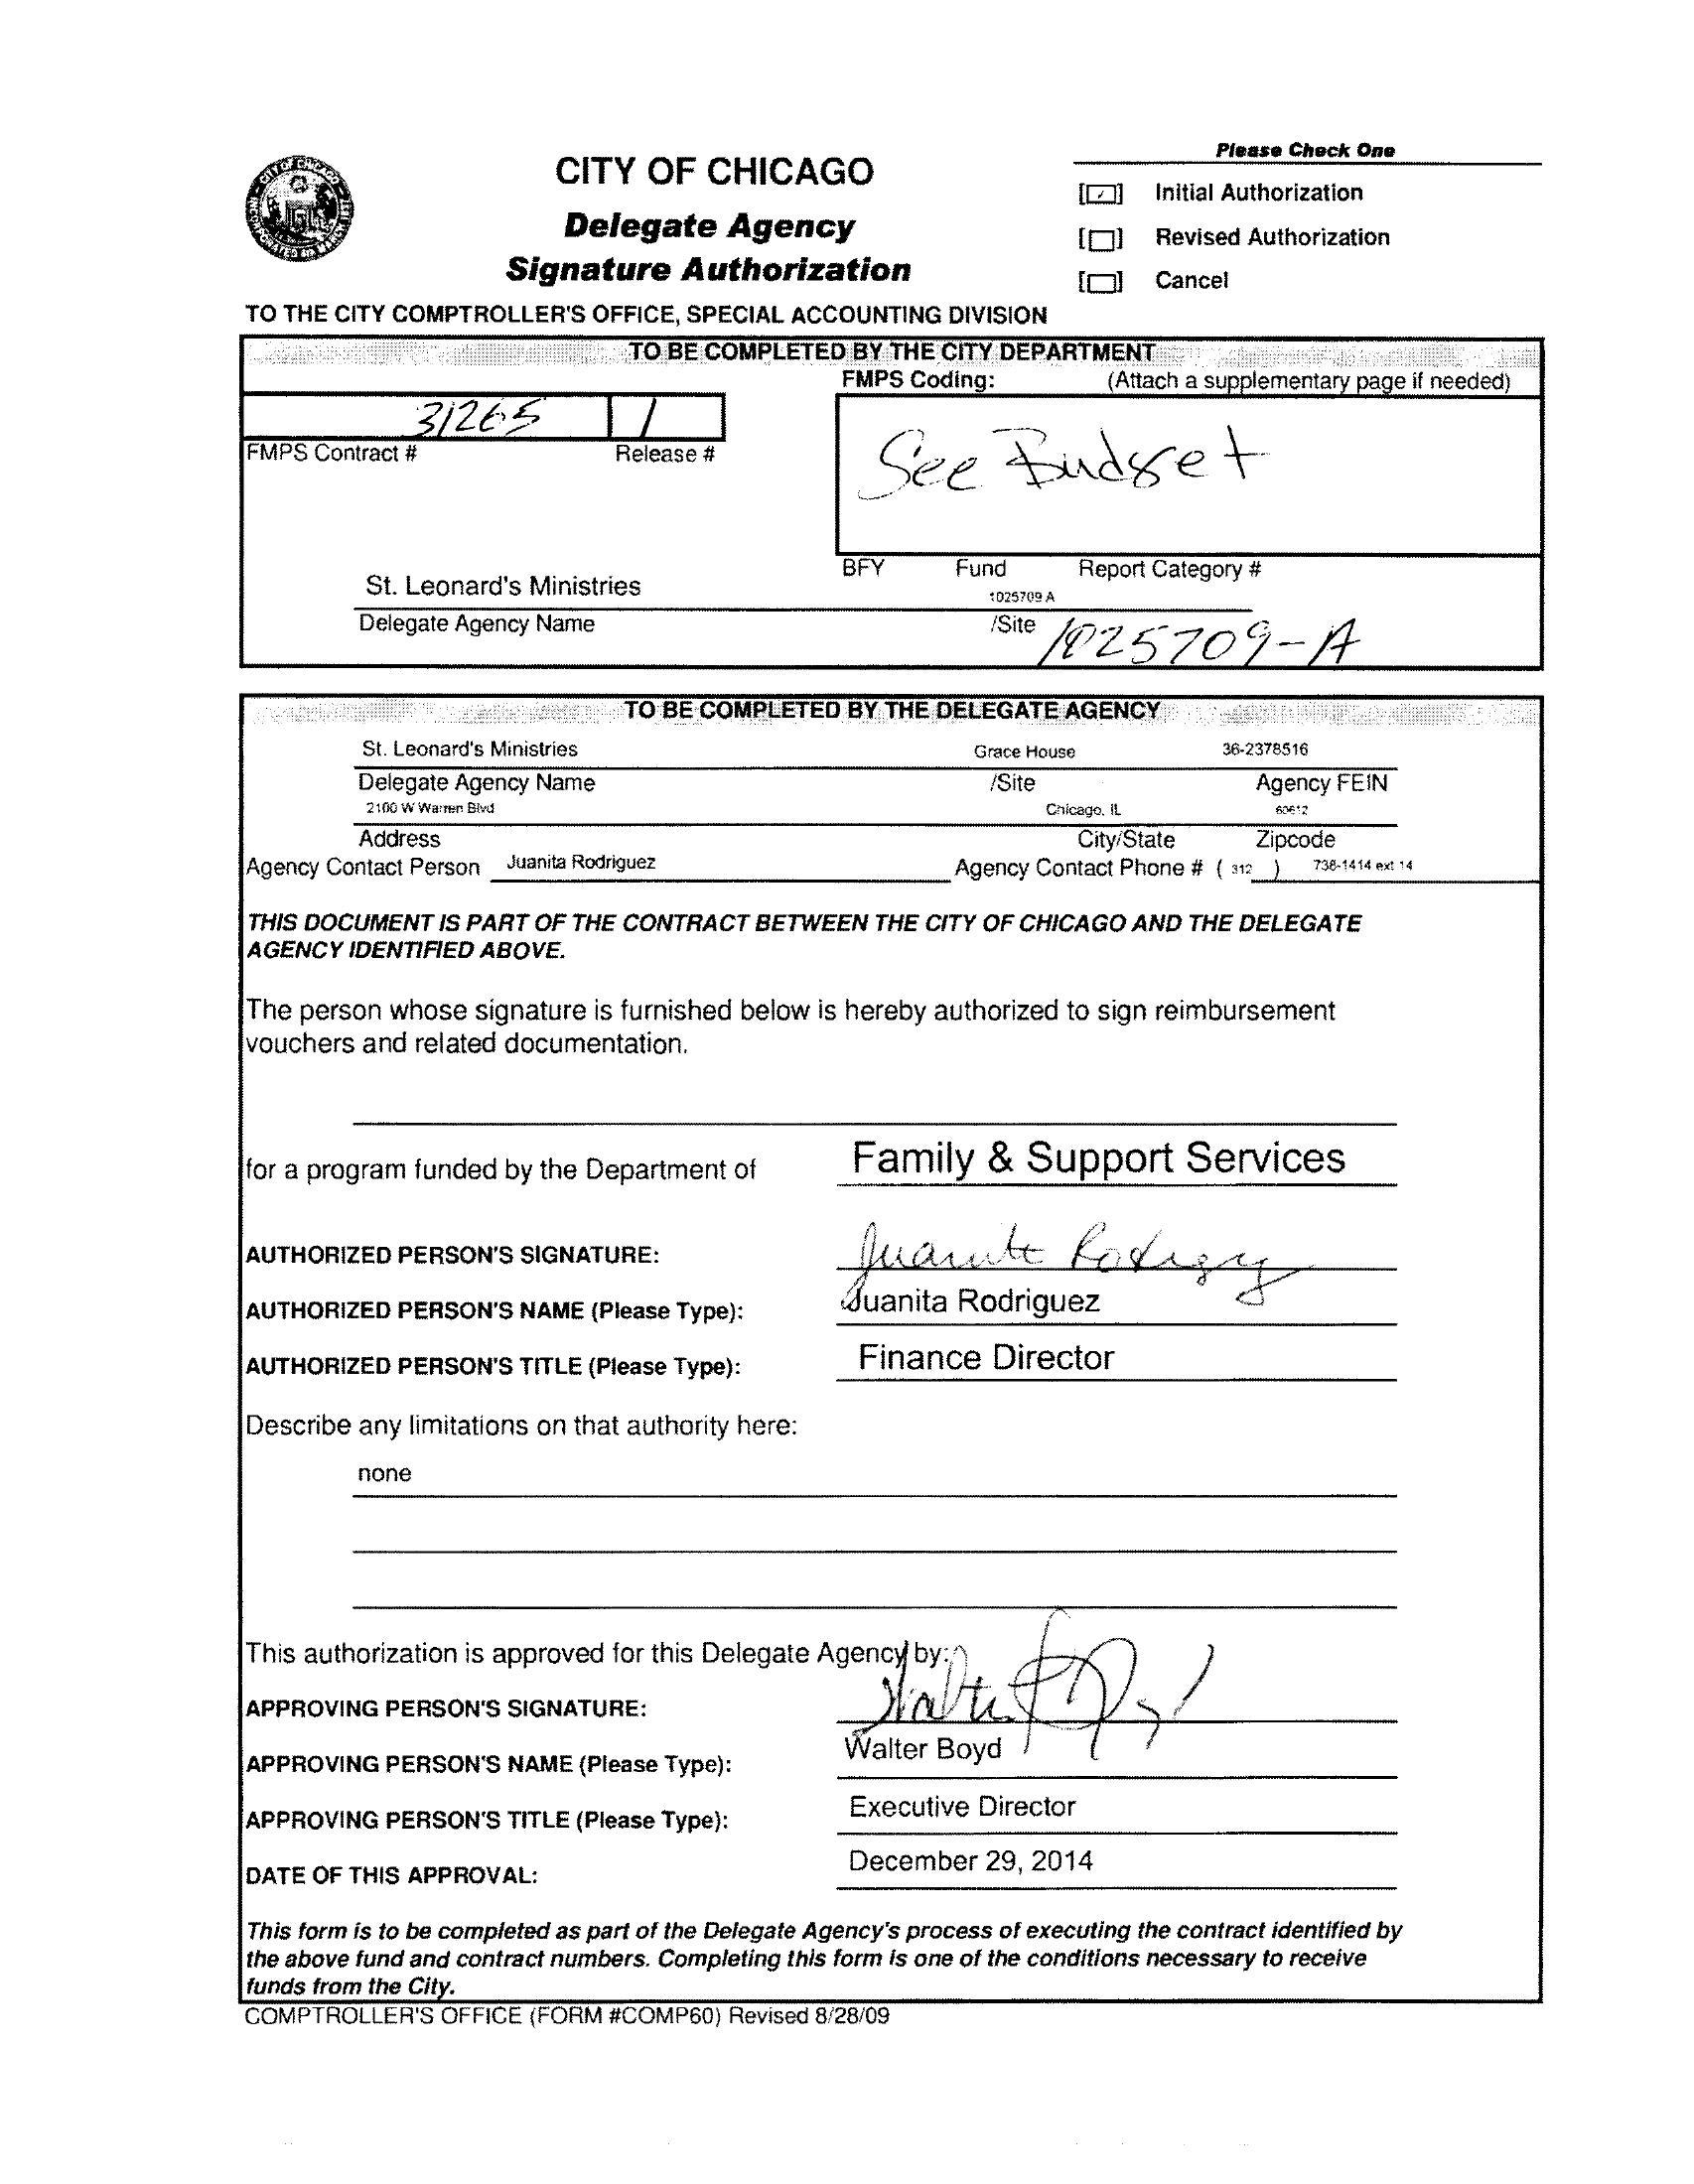 Please Check One
CITY OF CHICAGO
Delegate Agency
Signature Authorization
[✓] Initial Authorization
[ ] Revised Authorization
[ ] Cancel
TO THE CITY COMPTROLLER'S OFFICE, SPECIAL ACCOUNTING DIVISION
TO BE COMPLETED BY THE CITY DEPARTMENT
FMPS Coding: (Attach a supplementary page if needed)
31265 1
FMPS Contract # Release #
See Budget
BFY Fund Report Category #
St. Leonard's Ministries 1025709 A
Delegate Agency Name /Site 1025709-A
TO BE COMPLETED BY THE DELEGATE AGENCY
St. Leonard's Ministries Grace House 36-2378516
Delegate Agency Name /Site Agency FEIN
2100 W Warren Blvd Chicago, IL 60612
Address City/State Zipcode
Agency Contact Person Juanita Rodriguez Agency Contact Phone # ( 312 ) 738-1414 ext 14
THIS DOCUMENT IS PART OF THE CONTRACT BETWEEN THE CITY OF CHICAGO AND THE DELEGATE
AGENCY IDENTIFIED ABOVE.
The person whose signature is furnished below is hereby authorized to sign reimbursement
vouchers and related documentation.
for a program funded by the Department of Family & Support Services
AUTHORIZED PERSON'S SIGNATURE: Juanita Rodriguez
AUTHORIZED PERSON'S NAME (Please Type): Juanita Rodriguez
AUTHORIZED PERSON'S TITLE (Please Type): Finance Director
Describe any limitations on that authority here:
none
This authorization is approved for this Delegate Agency by:
APPROVING PERSON'S SIGNATURE:
APPROVING PERSON'S NAME (Please Type): Walter Boyd
APPROVING PERSON'S TITLE (Please Type): Executive Director
DATE OF THIS APPROVAL: December 29, 2014
This form is to be completed as part of the Delegate Agency's process of executing the contract identified by
the above fund and contract numbers. Completing this form is one of the conditions necessary to receive
funds from the City.
COMPTROLLER'S OFFICE (FORM #COMP60) Revised 8/28/09